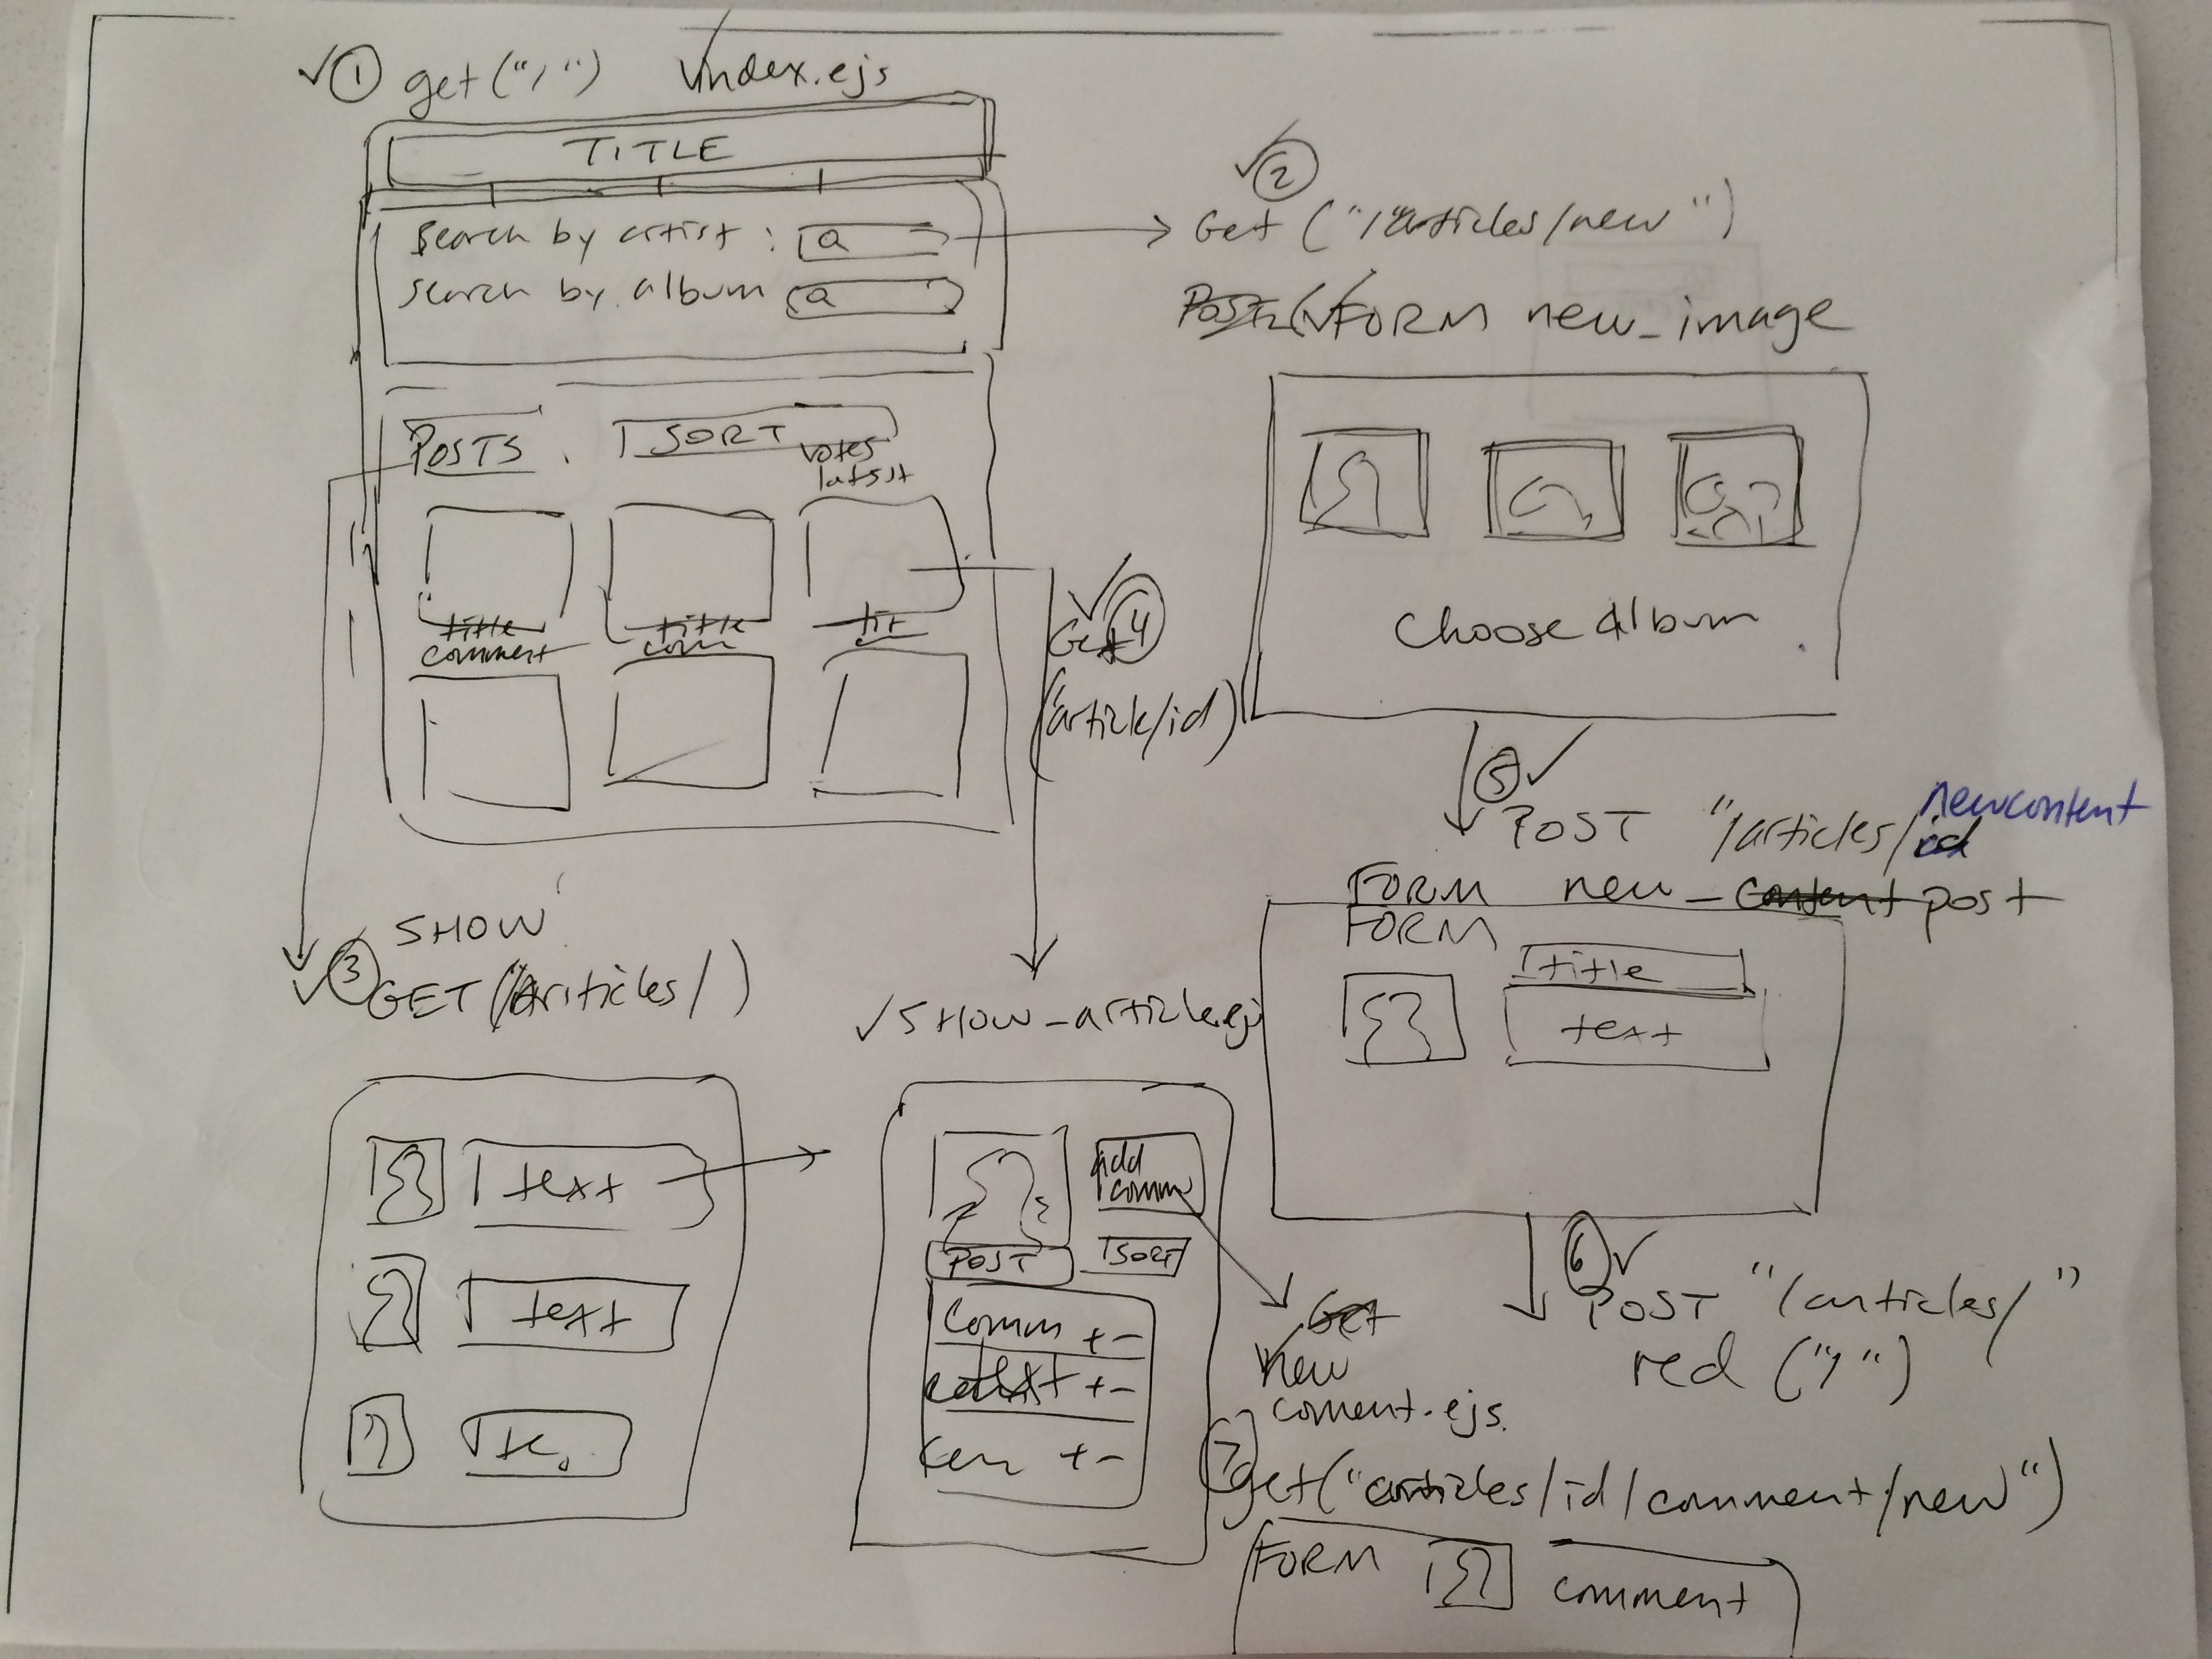 ✓ 1 get("/") ✓index.ejs
TITLE
Search by artist : a
search by album a
POSTS . SORT
votes
latest
title
comment
title
com
tit
✓ 2
Get ("/articles/new")
FORM new_image
Choose album
✓ 4
Get
(article/id)
5 ✓
POST "/articles/id
newcontent
FORM new_content post
FORM
title
text
6 ✓
POST "/articles/"
red ("/")
SHOW
✓ 3 GET("/articles/)
text
text
✓ SHOW_article.ejs
add
comm
POST SORT
Comm + -
text + -
+ -
Get
✓ new
coment.ejs
7 get("articles/id/comment/new")
FORM comment